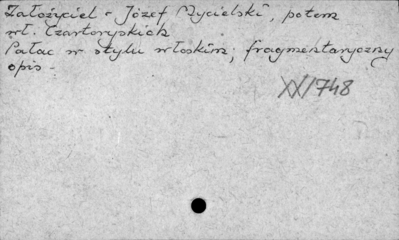 Założyciel - Józef Mycielski, potem
wł. Czartoryskich
Pałac w stylu włoskim; fragmentaryczny
opis -
XX/748